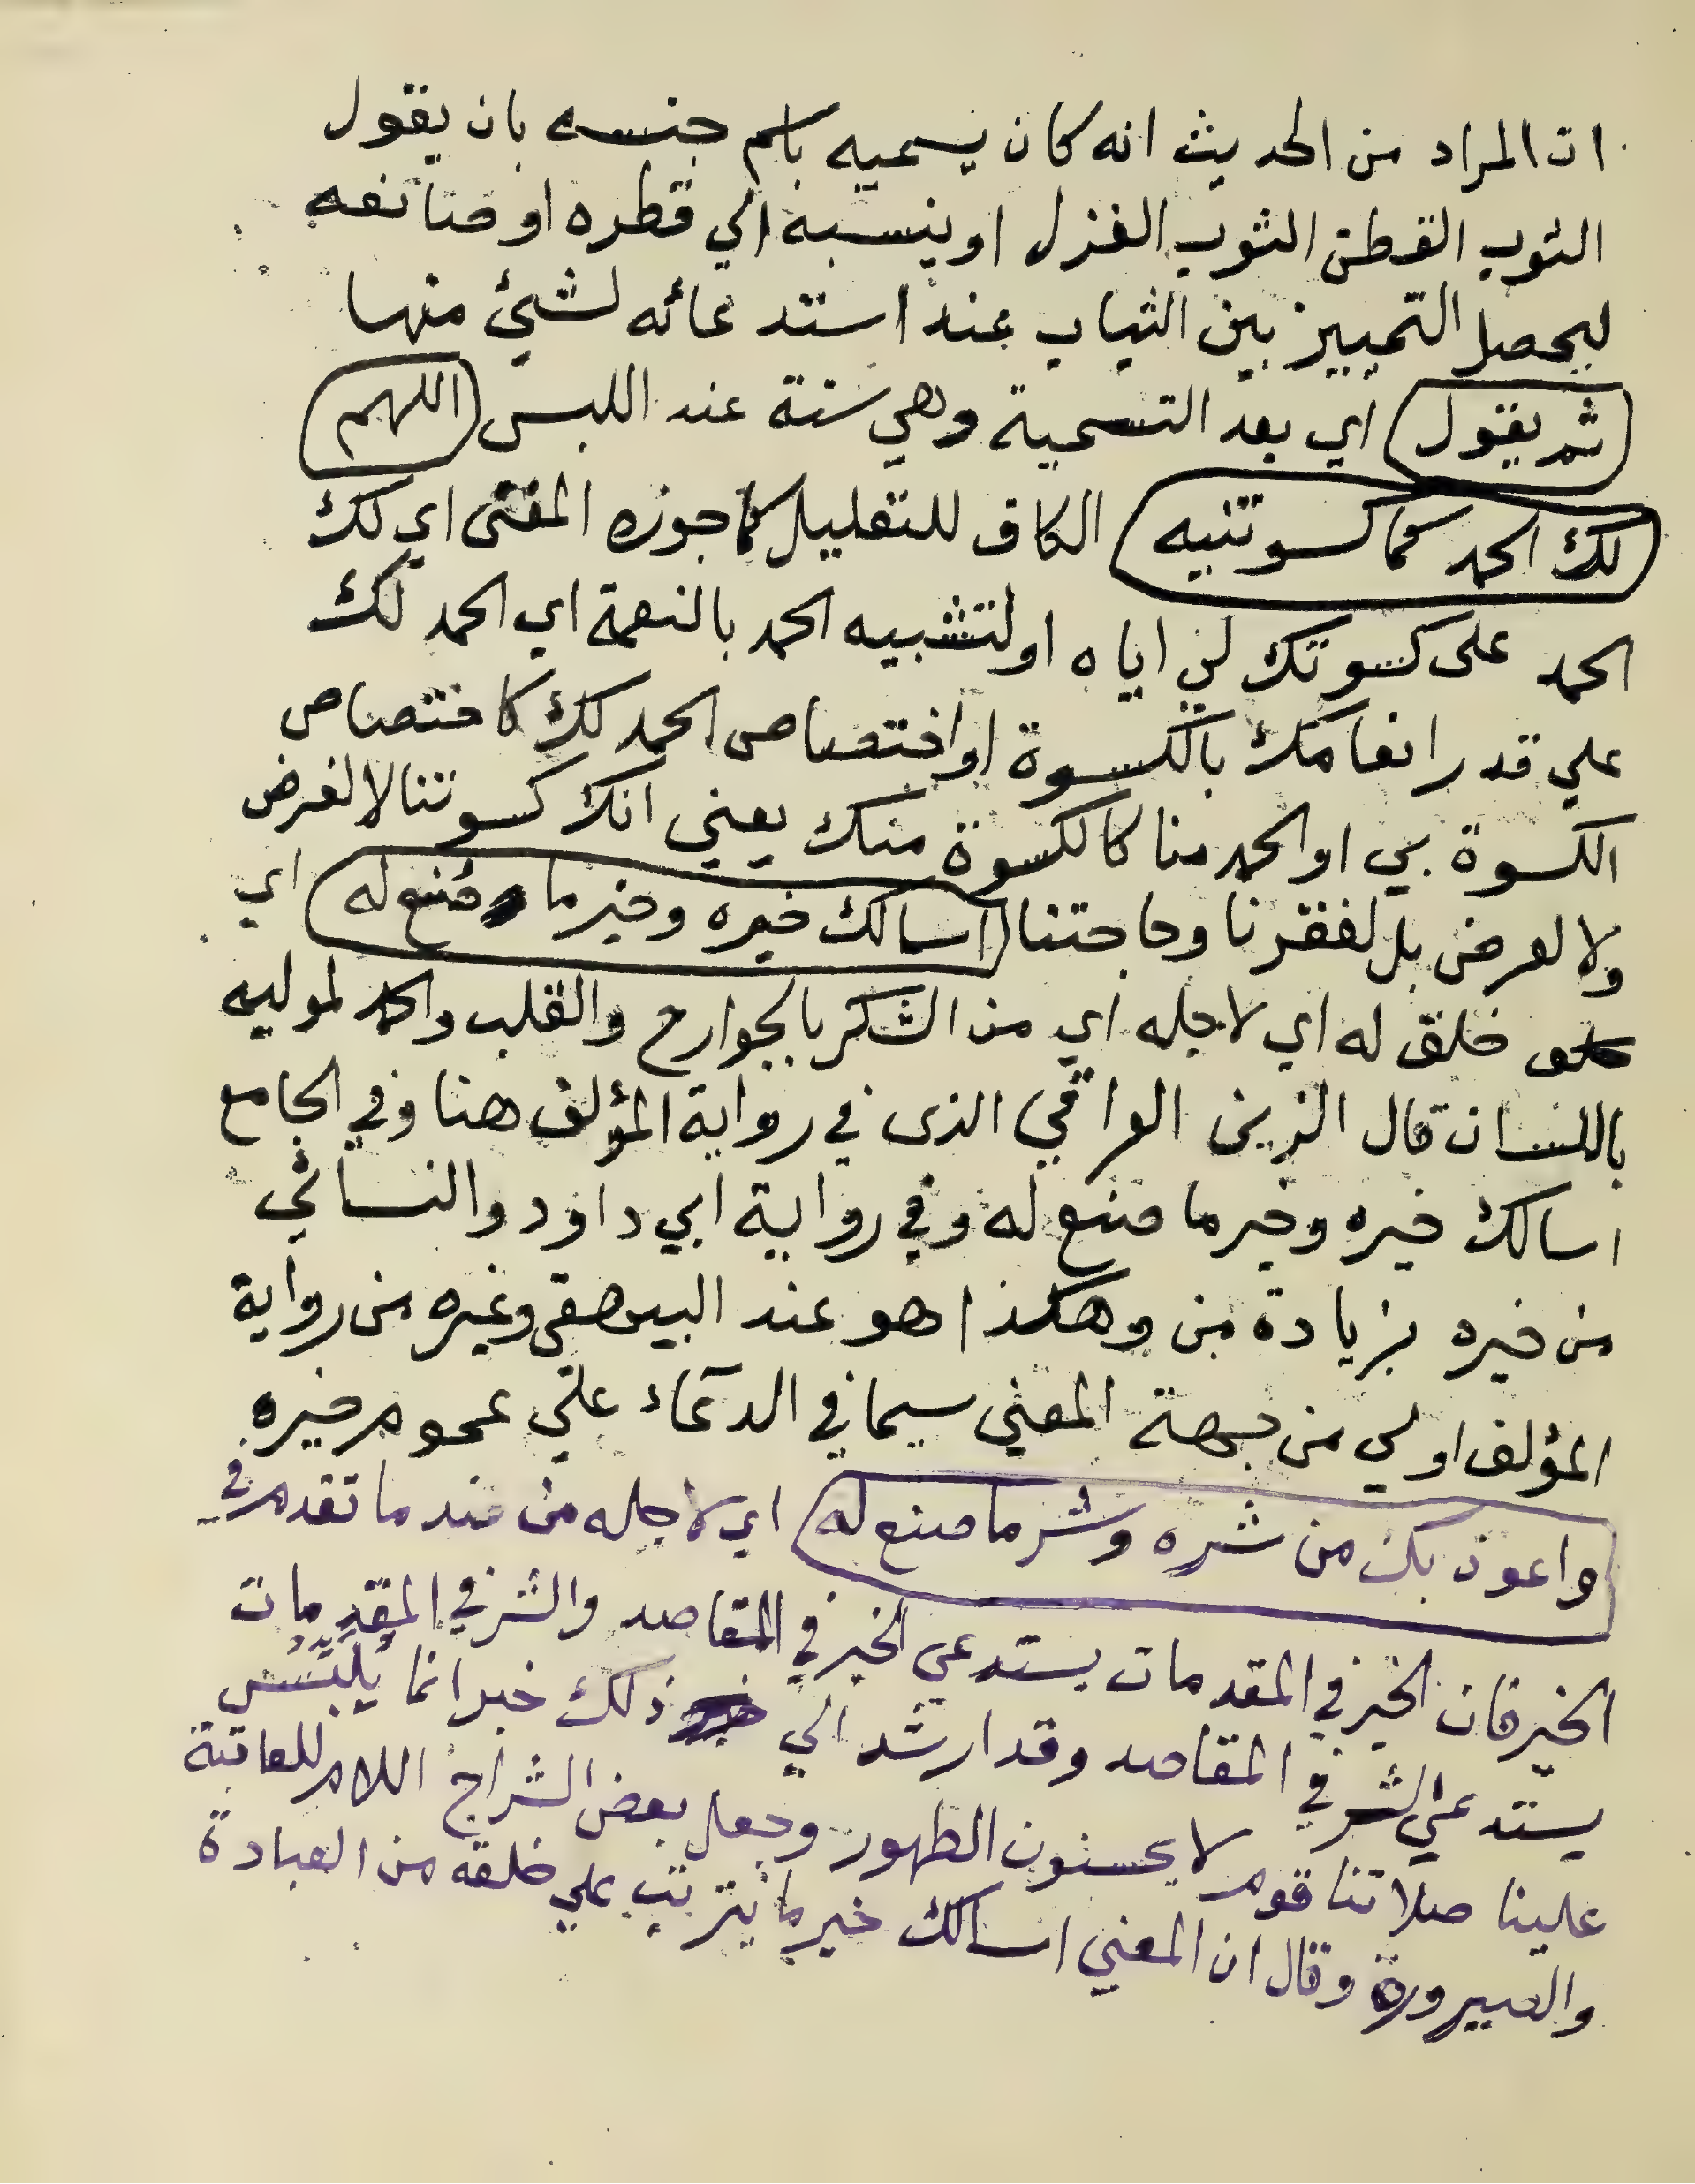 ان المراد من الحديث انه كان يسميه باسم جنسه بان يقول
الثوب القطن الثوب الغزل او ينسبه الي قطره او صانعه
ليحصل التمييز بين الثياب عند استدعائه لشئ منها
(ثم يقول) اي بعد التسمية وهي سنة عند اللبس (اللهم
لك الحمد كما كسوتنيه) الكاف للتعليل كما جوزه المغنى اي لك
الحمد على كسوتك لي اياه او لتشبيه الحمد بالنعمة اي الحمد لك
علي قدر انعامك بالكسوة او اختصاص الحمد لك كاختصاص
الكسوة بي او الحمد منا كالكسوة منك يعني انك كسوتنا لا لغرض
ولا لعرض بل لفقرنا وحاجتنا (اسالك خيره وخير ما صنع له) اي
خلق له اي لاجله اي من الشكر بالجوارح والقلب والحمد لموليه
باللسان قال الزين العراقي الذى في رواية المؤلف هنا وفي الجامع
اسالك خيره وخير ما صنع له وفي رواية ابي داود والنسائي
من خيره بزيادة من وهكذا هو عند البيهقى وغيره من رواية
المؤلف اولي من جهة المعني سيما في الدعاء علي عموم خيره
(واعوذ بك من شره وشر ما صنع له) اي لاجله من ضد ما تقدم في
الخير فان الخير في المقدمات يستدعي الخير في المقاصد والشر في المقدمات
يستدعي الشر في المقاصد وقد ارشد الي ذلك خبر انما يُلَبِّسُ
علينا صلاتنا قوم لا يحسنون الطهور وجعل بعض الشراح اللام للعاقبة
والصيرورة وقال ان المعني اسالك خير ما يترتب علي خلقه من العبادة